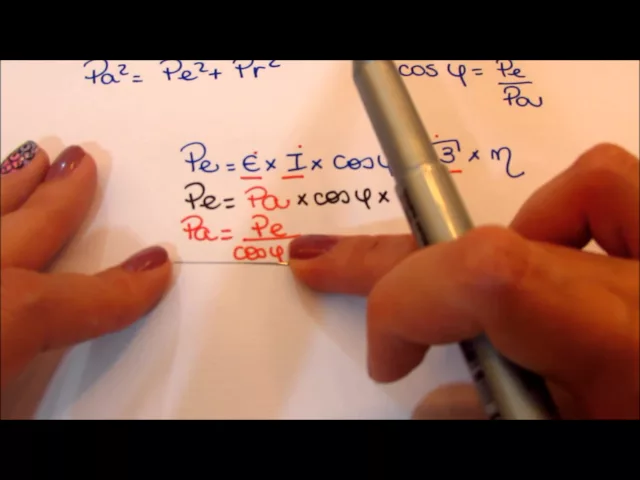 Pa² = Pe² + Pr²
cos φ = Pe/Pa
Pe = E × I × cosφ √3 × η
Pe = Pa × cosφ ×
Pa = Pe/cosφ